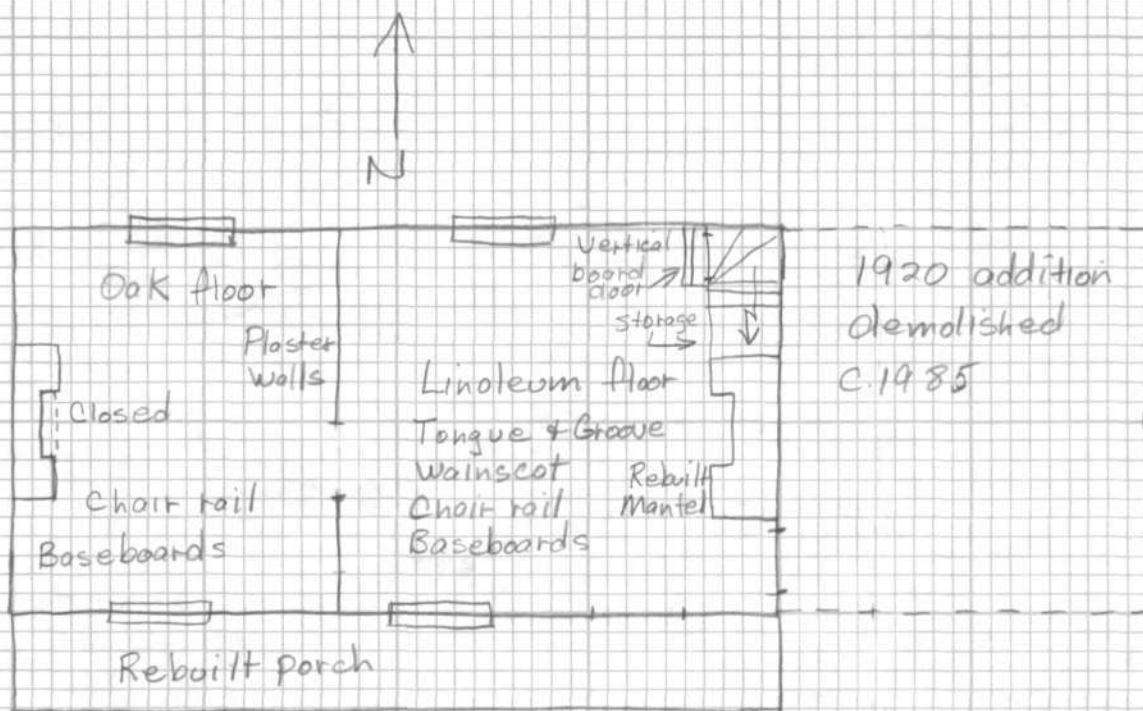 N
Oak floor
Plaster
Walls
Closed
Chair rail
Baseboards
Vertical
board
door
storage
Linoleum floor
Tongue & Groove
Wainscot
Chair rail
Baseboards
Rebuilt
Mantel
1920 addition
demolished
C.1985
Rebuilt porch